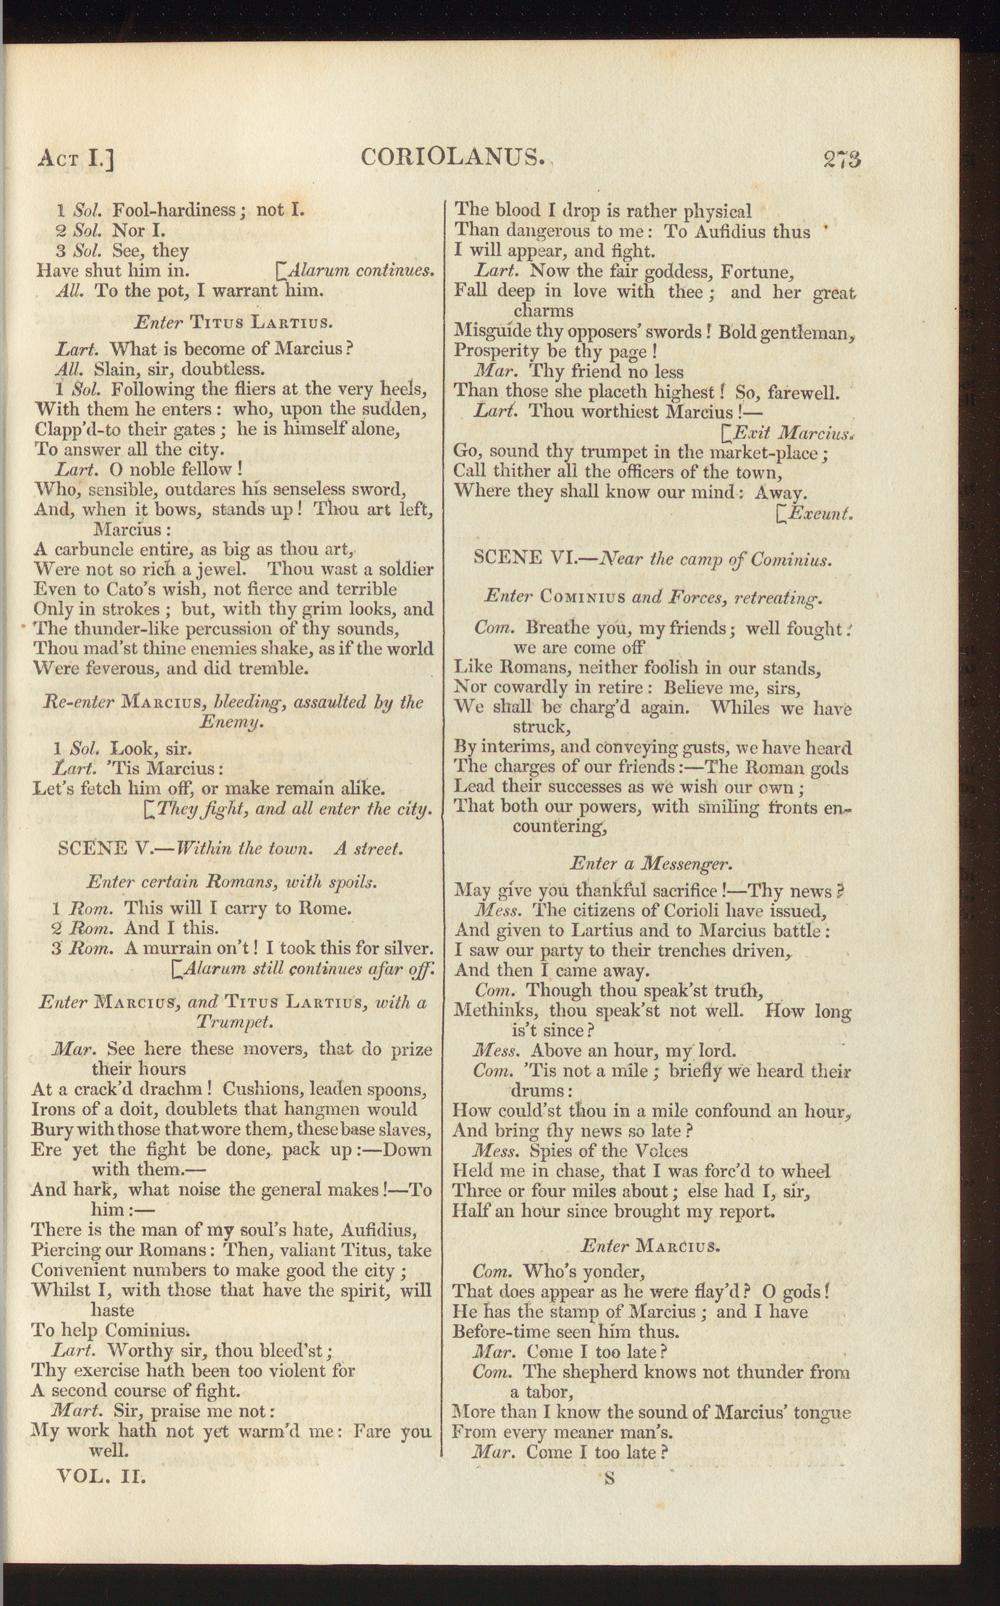 ACT I.]
CORIOLANUS.
273
1 Sol. Fool-hardiness; not I.
2 Sol. Nor I.
3 Sol. See, they
Have shut him in. [Alarum continues.
All. To the pot, I warrant him.
Enter TITUS LARTIUS.
Lart. What is become of Marcius?
All. Slain, sir, doubtless.
1 Sol. Following the fliers at the very heels,
With them he enters: who, upon the sudden,
Clapp'd-to their gates; he is himself alone,
To answer all the city.
Lart. O noble fellow!
Who, sensible, outdares his senseless sword,
And, when it bows, stands up! Thou art left,
Marcius:
A carbuncle entire, as big as thou art,
Were not so rich a jewel. Thou wast a soldier
Even to Cato's wish, not fierce and terrible
Only in strokes; but, with thy grim looks, and
The thunder-like percussion of thy sounds,
Thou mad'st thine enemies shake, as if the world
Were feverous, and did tremble.
Re-enter MARCIUS, bleeding, assaulted by the
Enemy.
1 Sol. Look, sir.
Lart. 'Tis Marcius:
Let's fetch him off, or make remain alike.
[They fight, and all enter the city.
SCENE V.—Within the town. A street.
Enter certain Romans, with spoils.
1 Rom. This will I carry to Rome.
2 Rom. And I this.
3 Rom. A murrain on't! I took this for silver.
[Alarum still continues afar off.
Enter MARCIUS, and TITUS LARTIUS, with a
Trumpet.
Mar. See here these movers, that do prize
their hours
At a crack'd drachm! Cushions, leaden spoons,
Irons of a doit, doublets that hangmen would
Bury with those that wore them, these base slaves,
Ere yet the fight be done, pack up:—Down
with them.—
And hark, what noise the general makes!—To
him:—
There is the man of my soul's hate, Aufidius,
Piercing our Romans: Then, valiant Titus, take
Convenient numbers to make good the city;
Whilst I, with those that have the spirit, will
haste
To help Cominius.
Lart. Worthy sir, thou bleed'st;
Thy exercise hath been too violent for
A second course of fight.
Mart. Sir, praise me not:
My work hath not yet warm'd me: Fare you
well.
VOL. II.
The blood I drop is rather physical
Than dangerous to me: To Aufidius thus
I will appear, and fight.
Lart. Now the fair goddess, Fortune,
Fall deep in love with thee; and her great
charms
Misguide thy opposers' swords! Bold gentleman,
Prosperity be thy page!
Mar. Thy friend no less
Than those she placeth highest! So, farewell.
Lart. Thou worthiest Marcius!—
[Exit Marcius.
Go, sound thy trumpet in the market-place;
Call thither all the officers of the town,
Where they shall know our mind: Away.
[Exeunt.
SCENE VI.—Near the camp of Cominius.
Enter COMINIUS and Forces, retreating.
Com. Breathe you, my friends; well fought:
we are come off
Like Romans, neither foolish in our stands,
Nor cowardly in retire: Believe me, sirs,
We shall be charg'd again. Whiles we have
struck,
By interims, and conveying gusts, we have heard
The charges of our friends:—The Roman gods
Lead their successes as we wish our own;
That both our powers, with smiling fronts en-
countering,
Enter a Messenger.
May give you thankful sacrifice!—Thy news?
Mess. The citizens of Corioli have issued,
And given to Lartius and to Marcius battle:
I saw our party to their trenches driven,
And then I came away.
Com. Though thou speak'st truth,
Methinks, thou speak'st not well. How long
is't since?
Mess. Above an hour, my lord.
Com. 'Tis not a mile; briefly we heard their
drums:
How could'st thou in a mile confound an hour,
And bring thy news so late?
Mess. Spies of the Volces
Held me in chase, that I was forc'd to wheel
Three or four miles about; else had I, sir,
Half an hour since brought my report.
Enter MARCIUS.
Com. Who's yonder,
That does appear as he were flay'd? O gods!
He has the stamp of Marcius; and I have
Before-time seen him thus.
Mar. Come I too late?
Com. The shepherd knows not thunder from
a tabor,
More than I know the sound of Marcius' tongue
From every meaner man's.
Mar. Come I too late?
S